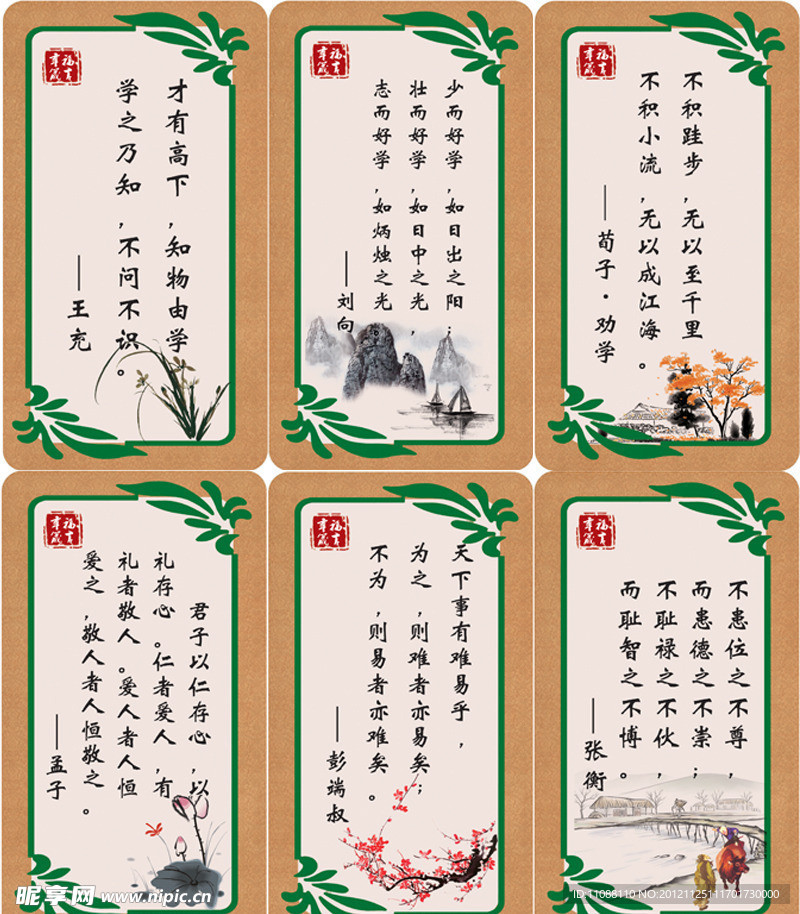 才有高下,知物由学
学之乃知,不问不识。
——王充
少而好学,如日出之阳;
壮而好学,如日中之光,
志而好学,如炳烛之光
——刘向
不积跬步,无以至千里
不积小流,无以成江海。
——荀子·劝学
君子以仁存心,以
礼存心。仁者爱人,有
礼者敬人。爱人者人恒
爱之,敬人者人恒敬之。
——孟子
天下事有难易乎,
为之,则难者亦易矣;
不为,则易者亦难矣。
——彭端叔
不患位之不尊,
而患德之不崇;
不耻禄之不伙,
而耻智之不博。
——张衡
昵享网 www.nipic.cn
ID:11088110 NO:20121125141701730000